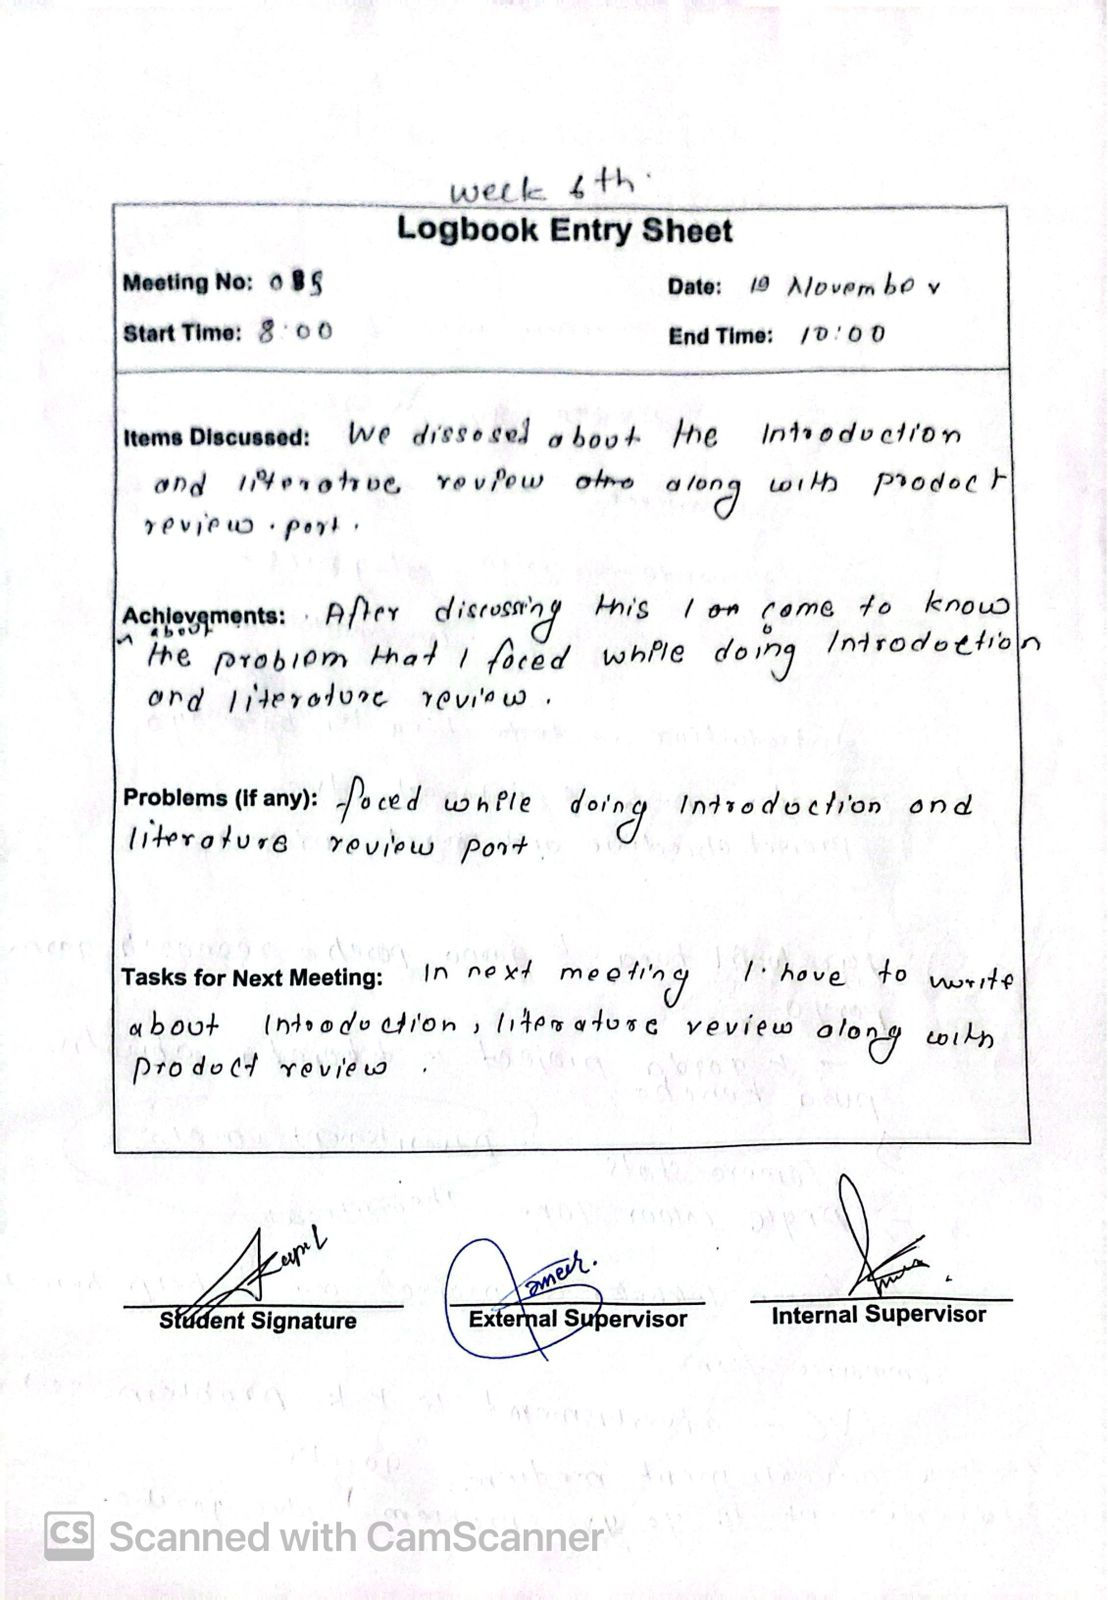 Week 6th.
Logbook Entry Sheet
Meeting No: 085
Date: 19 November
Start Time: 8:00
End Time: 10:00
Items Discussed: We dissosed about the Introduction
and literatrue review along with product
review. part.
Achievements: After discussing this I come to know
about
the problem that I faced while doing Introduction
and literature review.
Problems (if any): faced while doing Introduction and
literature review part.
Tasks for Next Meeting: In next meeting I have to write
about Introduction, literature review along with
product review.
Student Signature
External Supervisor
Internal Supervisor
CS Scanned with CamScanner